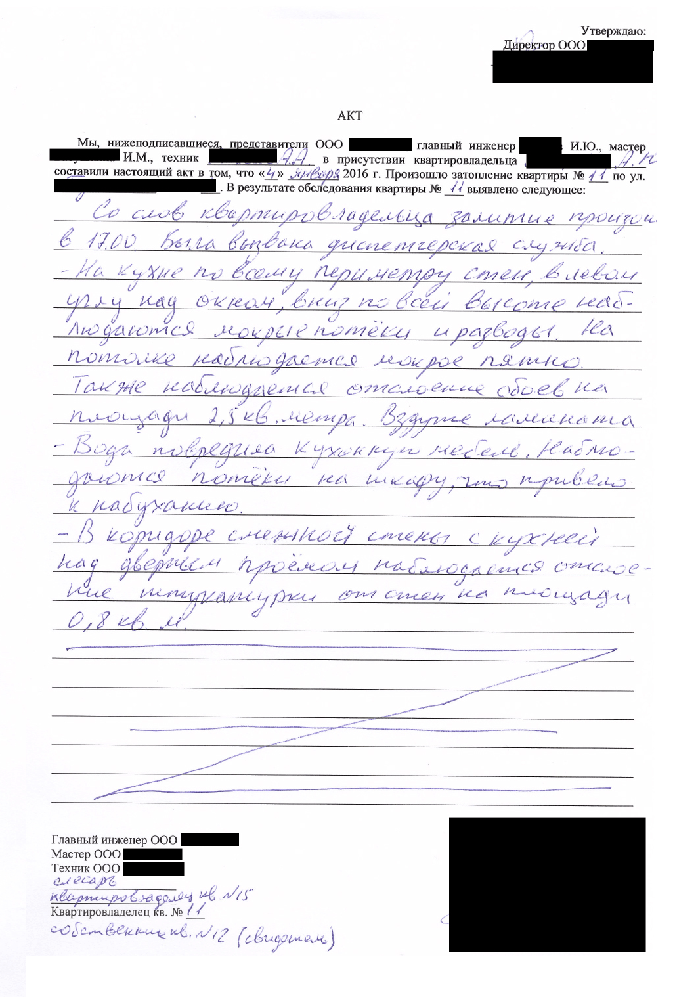 Утверждаю:
Директор ООО
АКТ
Мы, нижеподписавшиеся, представители ООО главный инженер И.Ю., мастер
И.М., техник А.А. в присутствии квартировладельца А.Н
составили настоящий акт в том, что «4» января 2016 г. Произошло затопление квартиры № 11 по ул.
. В результате обследования квартиры № 11 выявлено следующее:
Со слов квартировладельца залитие произош
в 17.00 Была вызвана диспетчерская служба.
- На кухне по всему периметру стен, в левом
углу над окном, вниз по всей высоте наб-
людаются мокрые потёки и разводы. На
потолке наблюдается мокрое пятно.
Также наблюдается отслоение обоев на
площади 2,5 кв. метра. Вздутие ламината
- Вода повредила кухонную мебель. Наблю-
даются потёки на шкафу, что привело
к набуханию.
- В коридоре смежной стены с кухней
над дверным проёмом наблюдается отслое-
ние штукатурки от стен на площади
0,8 кв м.
Главный инженер ООО
Мастер ООО
Техник ООО
слесарь
квартировладелец кв. №15
Квартировладелец кв. № 11
собственник кв. №12 (свидетель)